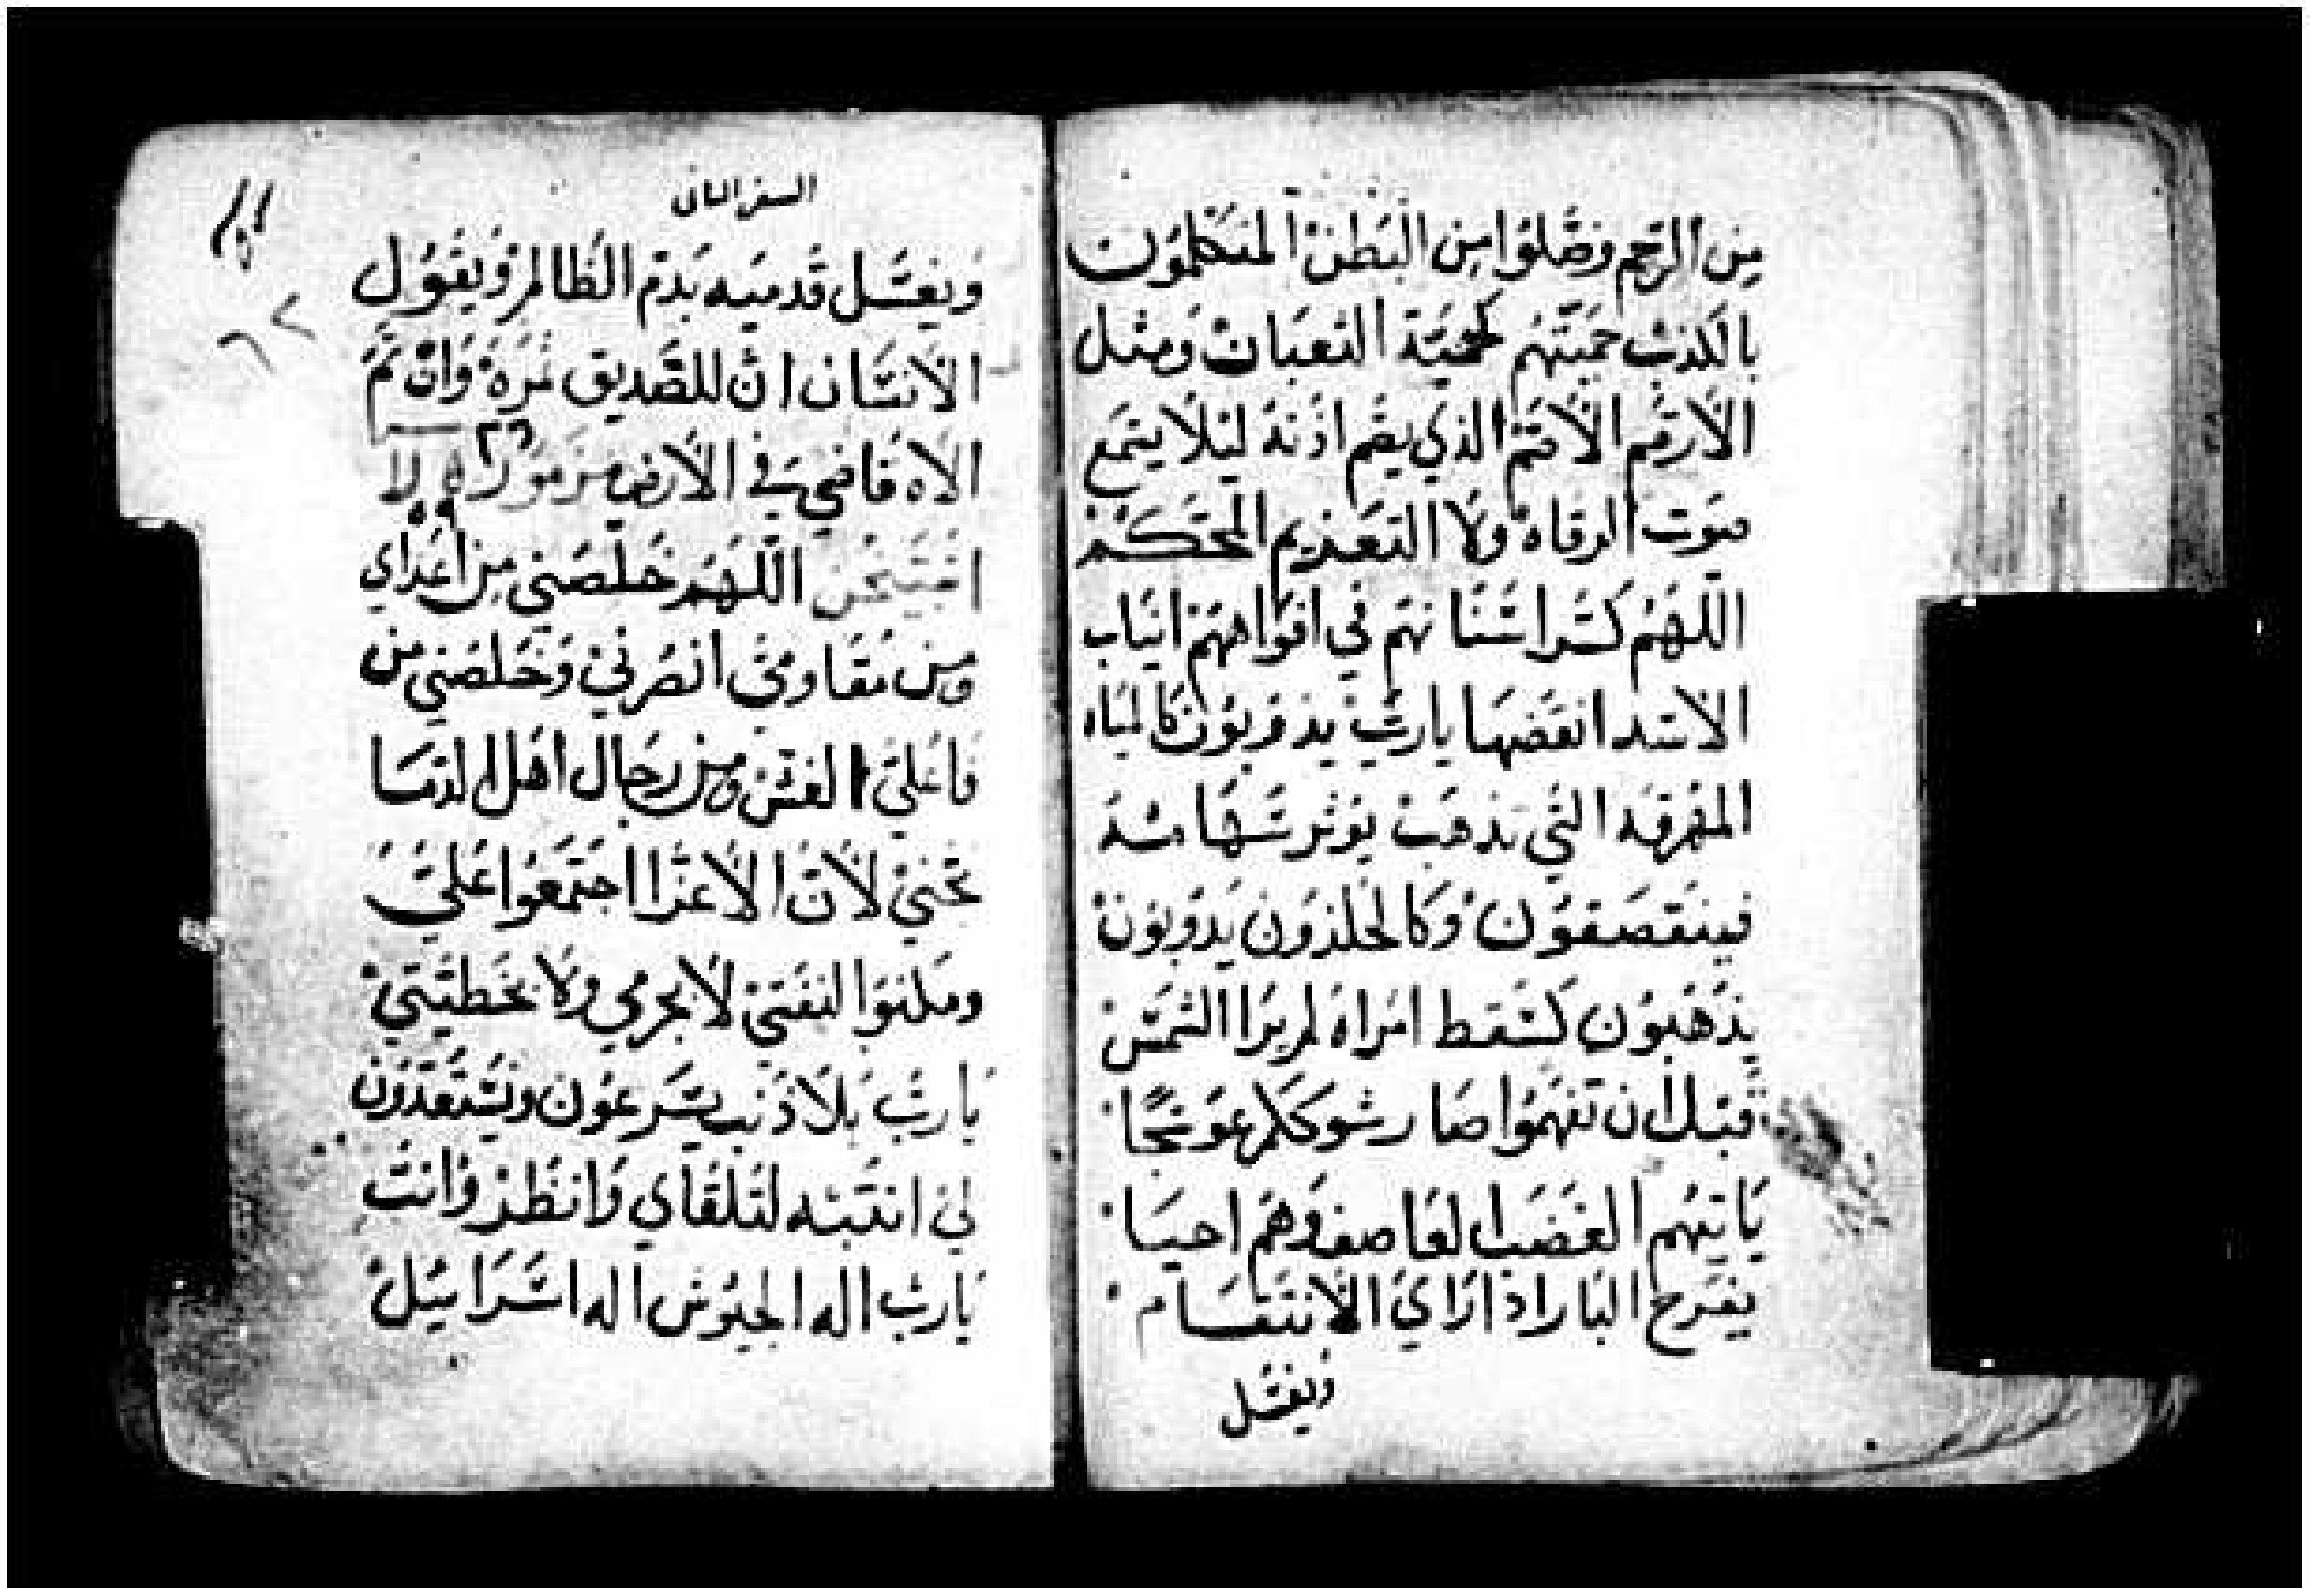 من الرحم وضلوا من البطن المتكلمون
بالكذب حميتهم كحمية الثعبان ومثل
الارقم الاصم الذي يصم اذنه ليلا يسمع
صوت الرقاه ولا التعزيم المحتكم
اللهم كسر اسنانهم في افواههم انياب
الاسد انقضها يارب يذوبون كالمياه
المهرقه التي تذهب يوتر سهامه
فينقصفون وكالحلزون يذوبون
يذهبون كسقط امراه لم يرا الشمس
قبل ان تفهموا صار شوككم عوسجا
ياتيهم الغضب العاصف وهم احيا
يفرح البار اذا راي الانتقام
ويغسل
السفر الثانى
ويغسل قدميه بدم الظالم ويقول
الانسان ان للصديق ثمره وان ثم
الاه قاضي في الارض مزمور
اللهم خلصني من اعداي
ومن مقاومي انصرني وخلصني من
فاعلي الغش ومن رجال اهل الدما
نجني لان الاعزا اجتمعوا علي
ومكنوا لنفسي لا بجرمي ولا بخطيتي
يارب بلا ذنب يسرعون ويستعدون
لي انتبه لتلقاي وانظر وانت
يارب اله الجيوش اله اسرائيل